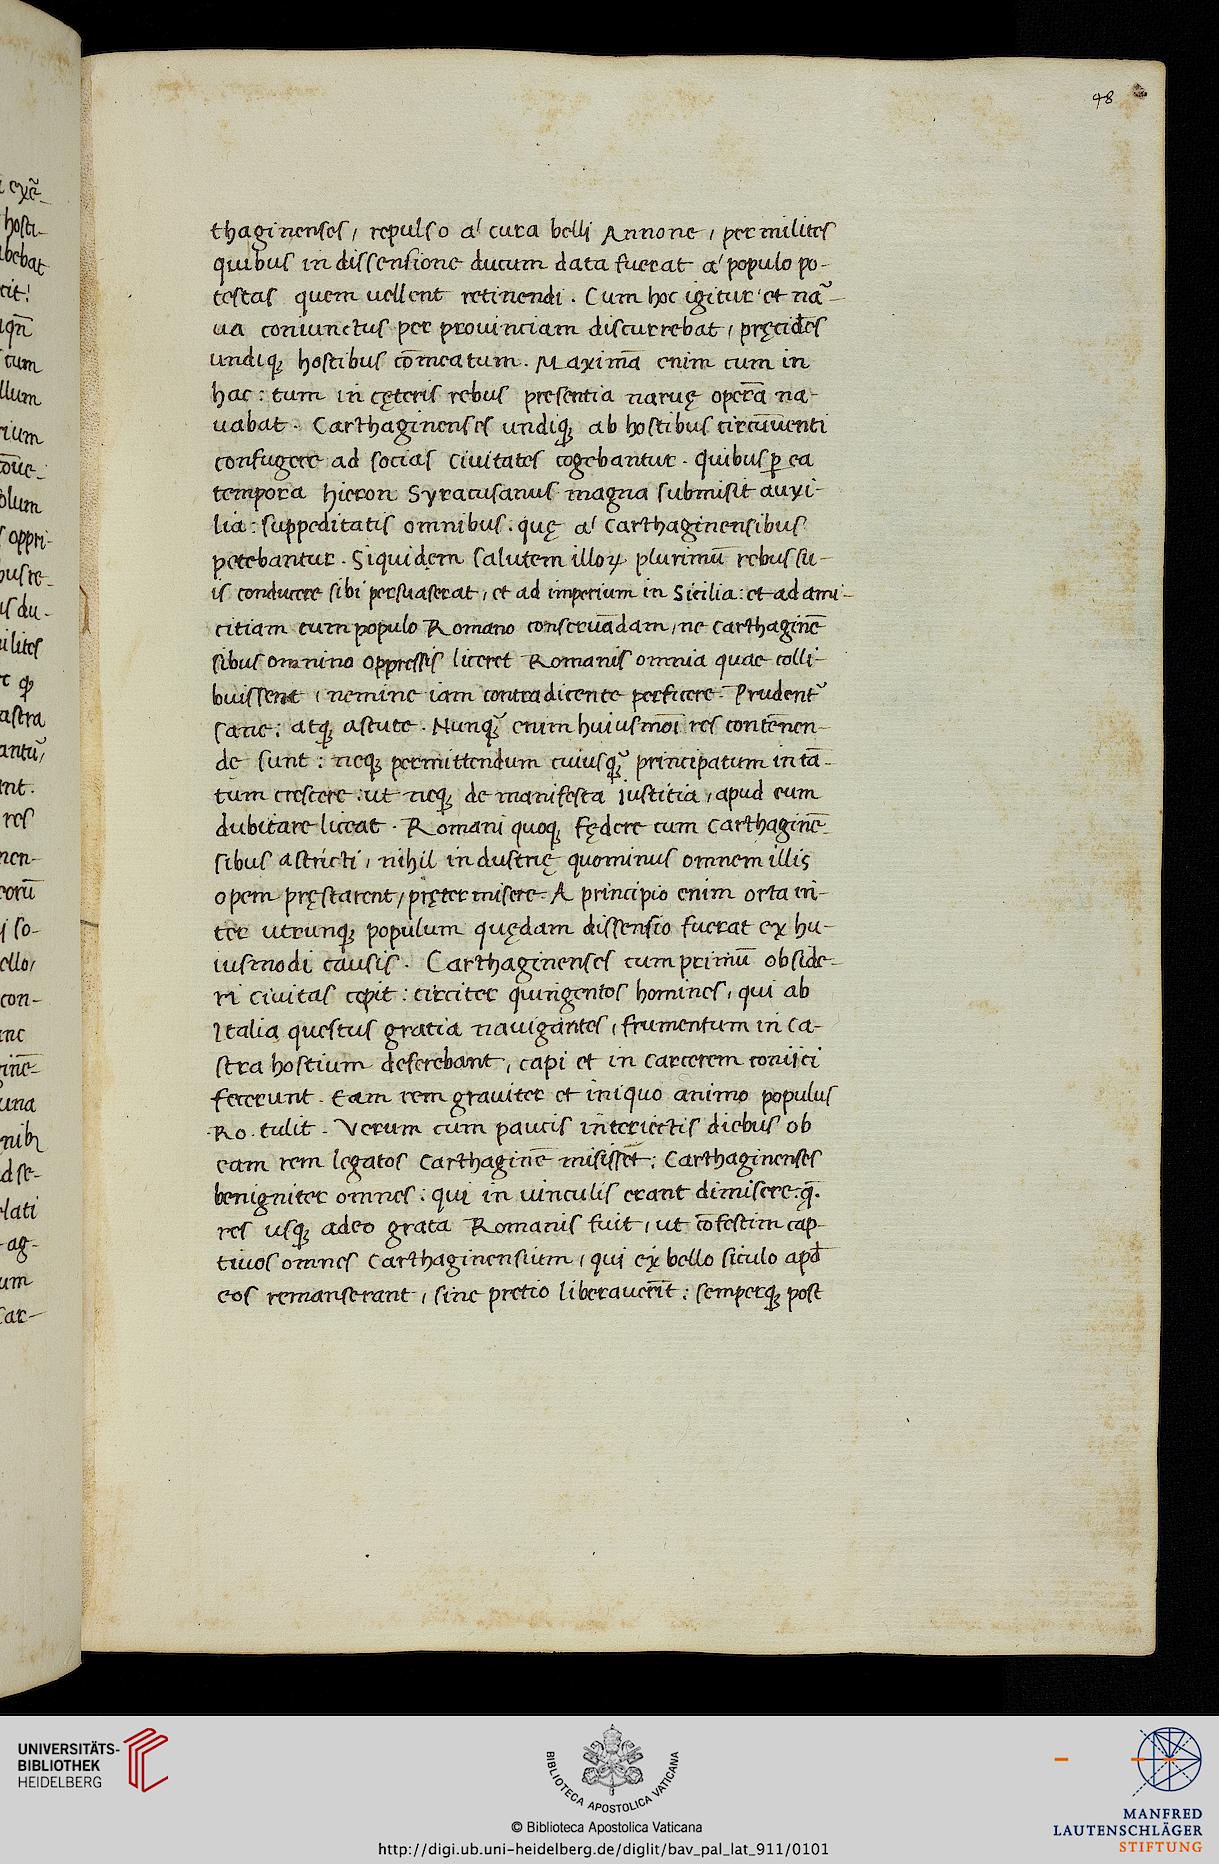 48
thaginenses, repulso a' cura belli Annone, per milites
quibus in dissensione ducum data fuerat a' populo po-
testas quem uellent retinendi. Cum hoc igitur et na~-
ua coniunctus per prouinciam discurrebat, pręcidēs
undiqꝫ hostibus cōmeatum. Maximā enim cum in
hac: tum in cęteris rebus presentia naruę operā na-
uabat. Carthaginenses undiqꝫ ab hostibus circūuenti
confugere ad socias ciuitates cogebantur. quibus ꝑ ea
tempora Hieron Syracusanus magna submisit auxi-
lia: suppeditatis omnibus. quę a' Carthaginensibus
petebantur. Siquidem salutem illoꝝ plurimū rebus su-
is conducere sibi persuaserat, et ad imperium in Sicilia: et ad ami-
citiam cum populo Romano conseruādam, ne Carthaginē
sibus omnino oppressis liceret Romanis omnia quae colli-
buissent, nemine iam contradicente perficere. Prudent~
sane: atqꝫ astute. Nunqꝫ~ enim huiusmōi res contēnen-
de sunt: neqꝫ permittendum cuiusqꝫ~ principatum in tā-
tum crescere: ut neqꝫ de manifesta iustitia, apud eum
dubitare liceat. Romani quoqꝫ fędere cum Carthaginē-
sibus astricti, nihil industrię quominus omnem illis
opem pręstarent, pręter misere. A principio enim orta in-
ter utrunqꝫ populum quędam dissensio fuerat ex hu-
iusmodi causis. Carthaginenses cum primū obside-
ri ciuitas cępit: circiter quingentos homines, qui ab
Italia questus gratia nauigantes, frumentum in ca-
stra hostium deferebant, capi et in carcerem coniici
fecerunt. Eam rem grauiter et iniquo animo populus
.Ro. tulit. Verum cum paucis interiectis diebus ob
eam rem legatos Carthaginē misissēt: Carthaginenses
benigniter omnes: qui in uinculis erant dimisere: q̄.
res usqꝫ adeo grata Romanis fuit, ut cōfestim cap-
tiuos omnes Carthaginensium, qui ex bello siculo apd̄
eos remanserant, sine pretio liberauerīt: semperqꝫ post
UNIVERSITÄTS-
BIBLIOTHEK
HEIDELBERG
BIBLIOTECA APOSTOLICA VATICANA
© Biblioteca Apostolica Vaticana
http://digi.ub.uni-heidelberg.de/diglit/bav_pal_lat_911/0101
MANFRED
LAUTENSCHLÄGER
STIFTUNG